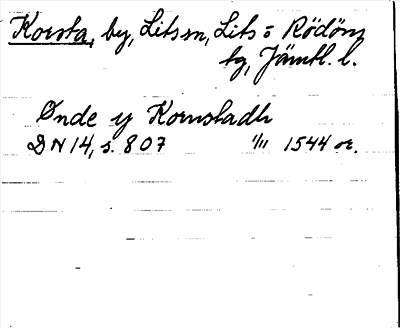 Korsta, by, Lits sn, Lits o Rödöns
tg, Jämtl. l.
Önde y Kornstadh
DN 14, s. 807 1/11 1544 or.